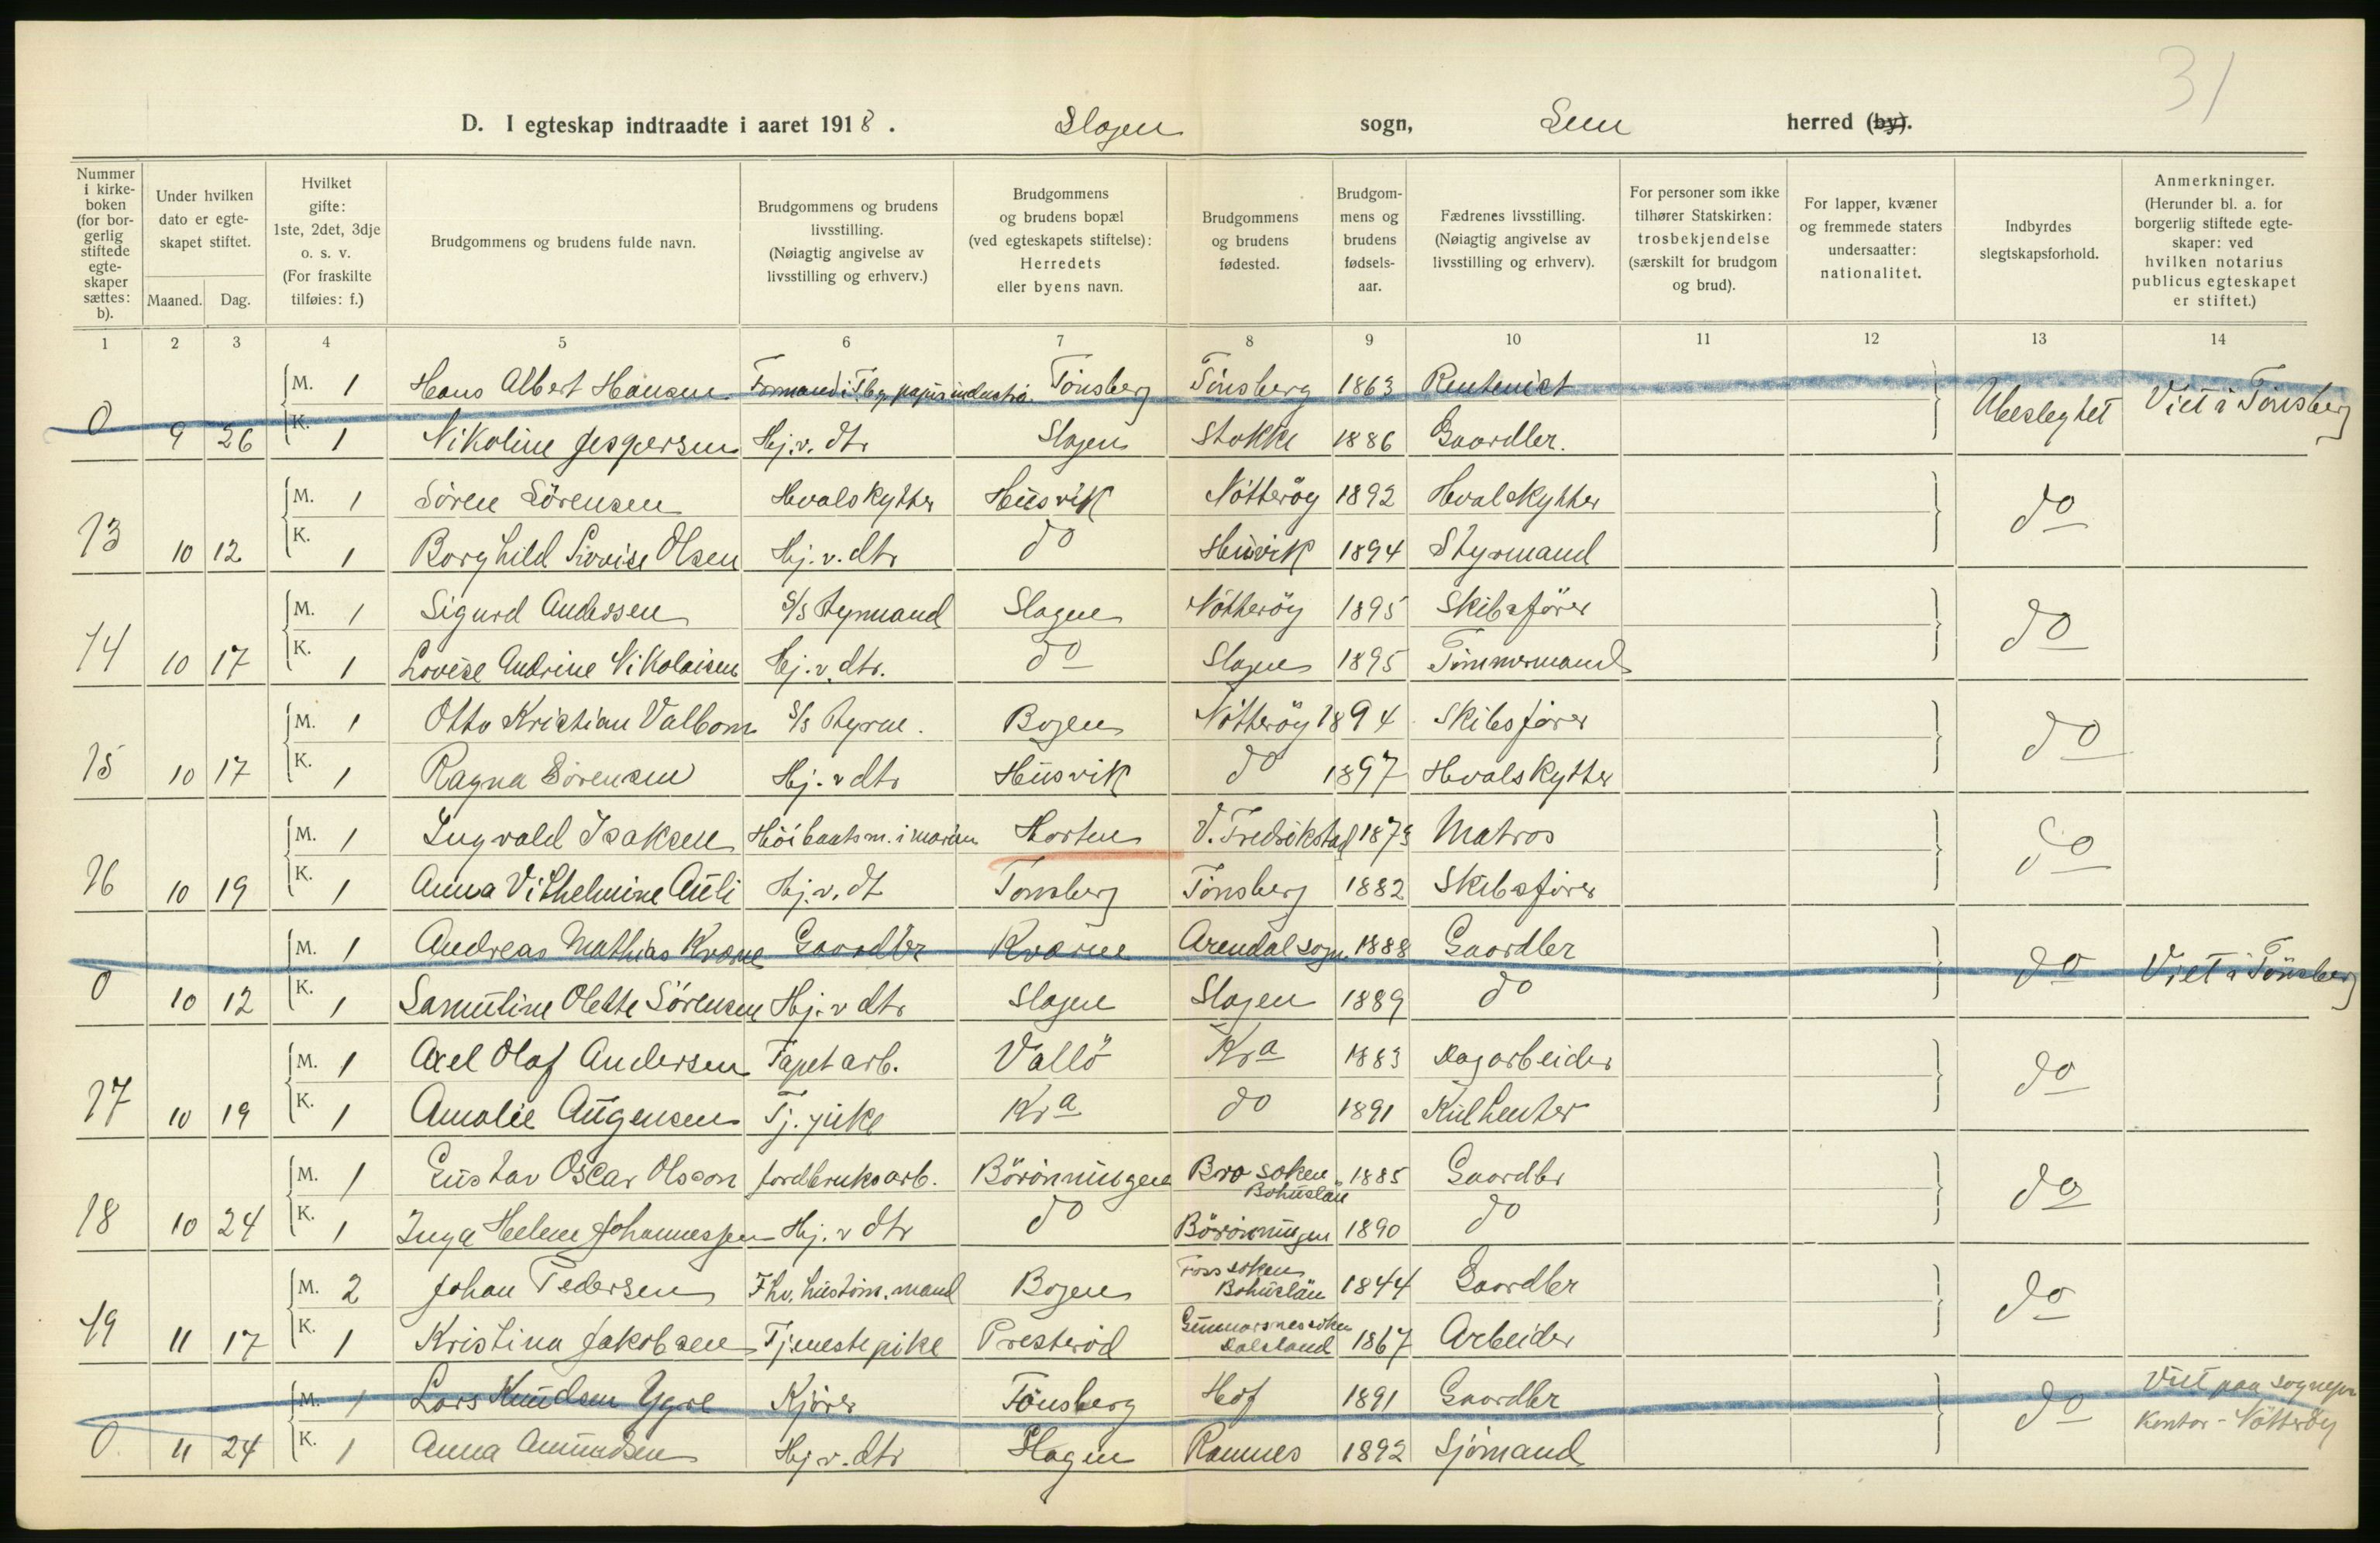 31
D. I egteskap indtraadte i aaret 1918. Slagen sogn, Sem herred (by).
Nummer i kirke-boken (for bor-gerlig stiftede egte-skaper sættes: b). | Under hvilken dato er egte-skapet stiftet. Maaned. Dag. | Hvilket gifte: 1ste, 2det, 3dje o. s. v. (For fraskilte tilføies: f.) | Brudgommens og brudens fulde navn. | Brudgommens og brudens livsstilling. (Nøiagtig angivelse av livsstilling og erhverv.) | Brudgommens og brudens bopæl (ved egteskapets stiftelse): Herredets eller byens navn. | Brudgommens og brudens fødested. | Brudgom-mens og brudens fødsels-aar. | Fædrenes livsstilling. (Nøiagtig angivelse av livsstilling og erhverv). | For personer som ikke tilhører Statskirken: trosbekjendelse (særskilt for brudgom og brud). | For lapper, kvæner og fremmede staters undersaatter: nationalitet. | Indbyrdes slegtskapsforhold. | Anmerkninger. (Herunder bl. a. for borgerlig stiftede egte-skaper: ved hvilken notarius publicus egteskapet er stiftet.)
1 2 3 4 5 6 7 8 9 10 11 12 13 14
M. 1 Hans Albert Hansen Formand i Tbg. papirindustri Tönsberg Tönsberg 1863 Rentenist Ubeslegtet Viet i Tönsberg
0 9 26 K. 1 Nikoline Jespersen Hj. v. dtr Slagen Stokke 1886 Gaardbr.
M. 1 Sören Sörensen Hvalskytter Husvik Nötteröy 1892 Hvalskytter do
13 10 12 K. 1 Borghild Lovise Olsen Hj. v. dtr do Husvik 1894 Styrmand
M. 1 Sigurd Andersen S/s styrmand Slagen Nötteröy 1895 Skibsförer do
14 10 17 K. 1 Lovise Andrine Nikolaisen Hj. v. dtr. do Slagen 1895 Tömmermand
M. 1 Otto Kristian Valbom S/s styrm. Bogen Nötteröy 1894 Skibsförer do
15 10 17 K. 1 Ragna Sörensen Hj. v dtr Husvik do 1897 Hvalskytter
M. 1 Ingvald Isaksen Höibaatsm. i marinen Horten V. Fredrikstad 1879 Matros do
16 10 19 K. 1 Anna Vilhelmine Auli Hj. v. dt Tönsberg Tönsberg 1882 Skibsförer
M. 1 Andreas Mathias Kværne Gaardbr Kværne Arendal sogn 1888 Gaardbr do Viet i Tönsberg
0 10 12 K. 1 Samuline Olette Sörensen Hj. v dtr Slagen Slagen 1889 do
M. 1 Axel Olaf Andersen Tapetarb. Vallö Kra 1883 Dagarbeider do
17 10 19 K. 1 Amalie Augensen Tj. pike Kra do 1891 Kulhenter
M. 1 Gustav Oscar Olsson Jordbruksarb. Börönningen Bro soken Bohuslän 1885 Gaardbr do
18 10 24 K. 1 Inga Helene Johannessen Hj. v dtr do Börönningen 1890 do
M. 2 Johan Pedersen Fhv. hustöm. mand Bogen Foss soken Bohuslän 1844 Gaardbr do
19 11 17 K. 1 Kristina Jakobsen Tjenestepike Presteröd Gunnarsnessoken Dalsland 1867 Arbeider
M. 1 Lars Knudsen Ygre Kjörer Tönsberg Hof 1891 Gaardbr do Viet paa sognepr
0 11 24 K. 1 Anna Amundsen Hj v. dtr Slagen Ramnes 1892 Sjömand kontor - Nötteröy